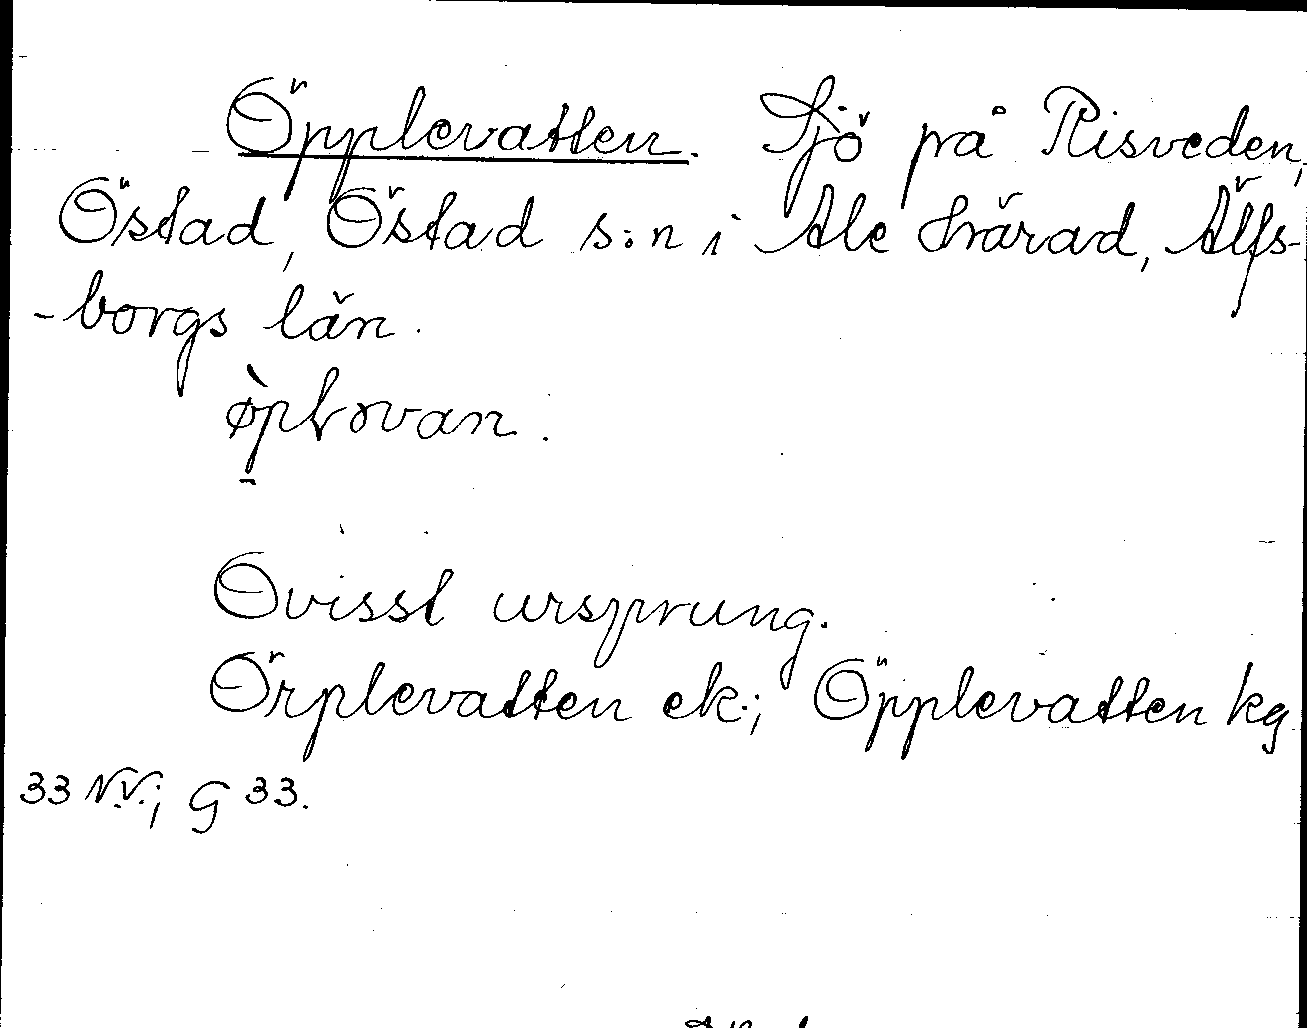 Öpplevatten. Sjö på Risveden,
Östad, Östad s:n i Ale härad, Älfs-
-borgs län.
ø̀plovan.
Ovisst ursprung.
Örplevatten ek.; Öpplevatten kg
33 N.V.; G 33.